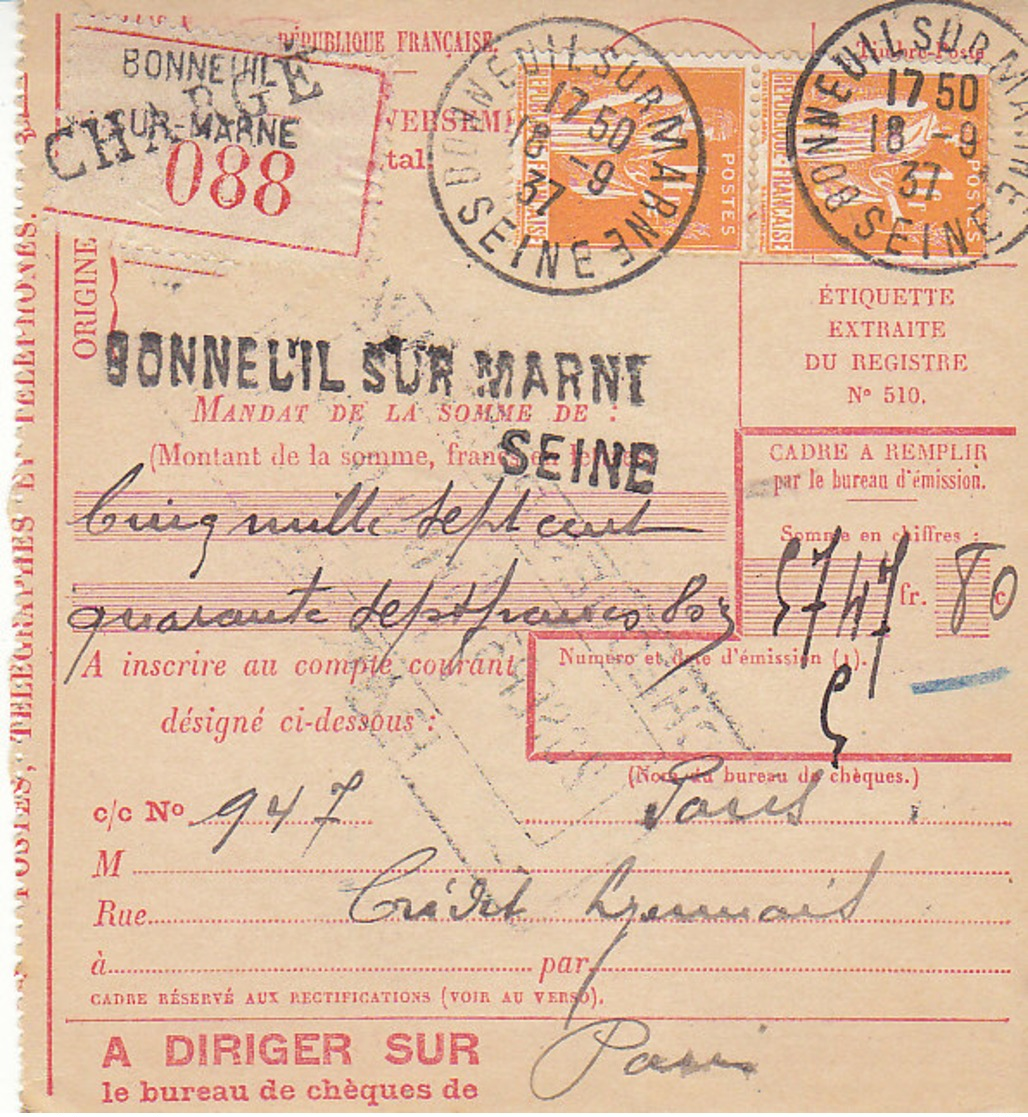 RÉPUBLIQUE FRANÇAISE.
Timbre-Poste
BONNEUIL
SUR-MARNE
CHARGÉ
088
BONNEUIL SUR MARNE
17 50
18 -9
37
SEINE
BONNEUIL SUR MARNE
17 50
18 -9
37
SEINE
POSTES
REPUBLIQUE FRANÇAISE
POSTES
REPUBLIQUE-FRANÇAISE
ORIGINE
POSTES, TÉLÉGRAPHES ET TÉLÉPHONES.
BONNEUIL SUR MARNE
SEINE
ÉTIQUETTE
EXTRAITE
DU REGISTRE
N° 510.
MANDAT DE LA SOMME DE :
(Montant de la somme, francs en lettres
Cinq mille sept cent
quarante sept francs 80
CADRE A REMPLIR
par le bureau d'émission.
Somme en chiffres :
5747 fr. 80 c
A inscrire au compte courant
désigné ci-dessous :
Numéro et date d'émission (1).
5
(Nom du bureau de chèques.)
c/c No 947 Paris
M
Rue Crédit Lyonnais
à par
CADRE RÉSERVÉ AUX RECTIFICATIONS (VOIR AU VERSO).
A DIRIGER SUR
le bureau de chèques de Paris